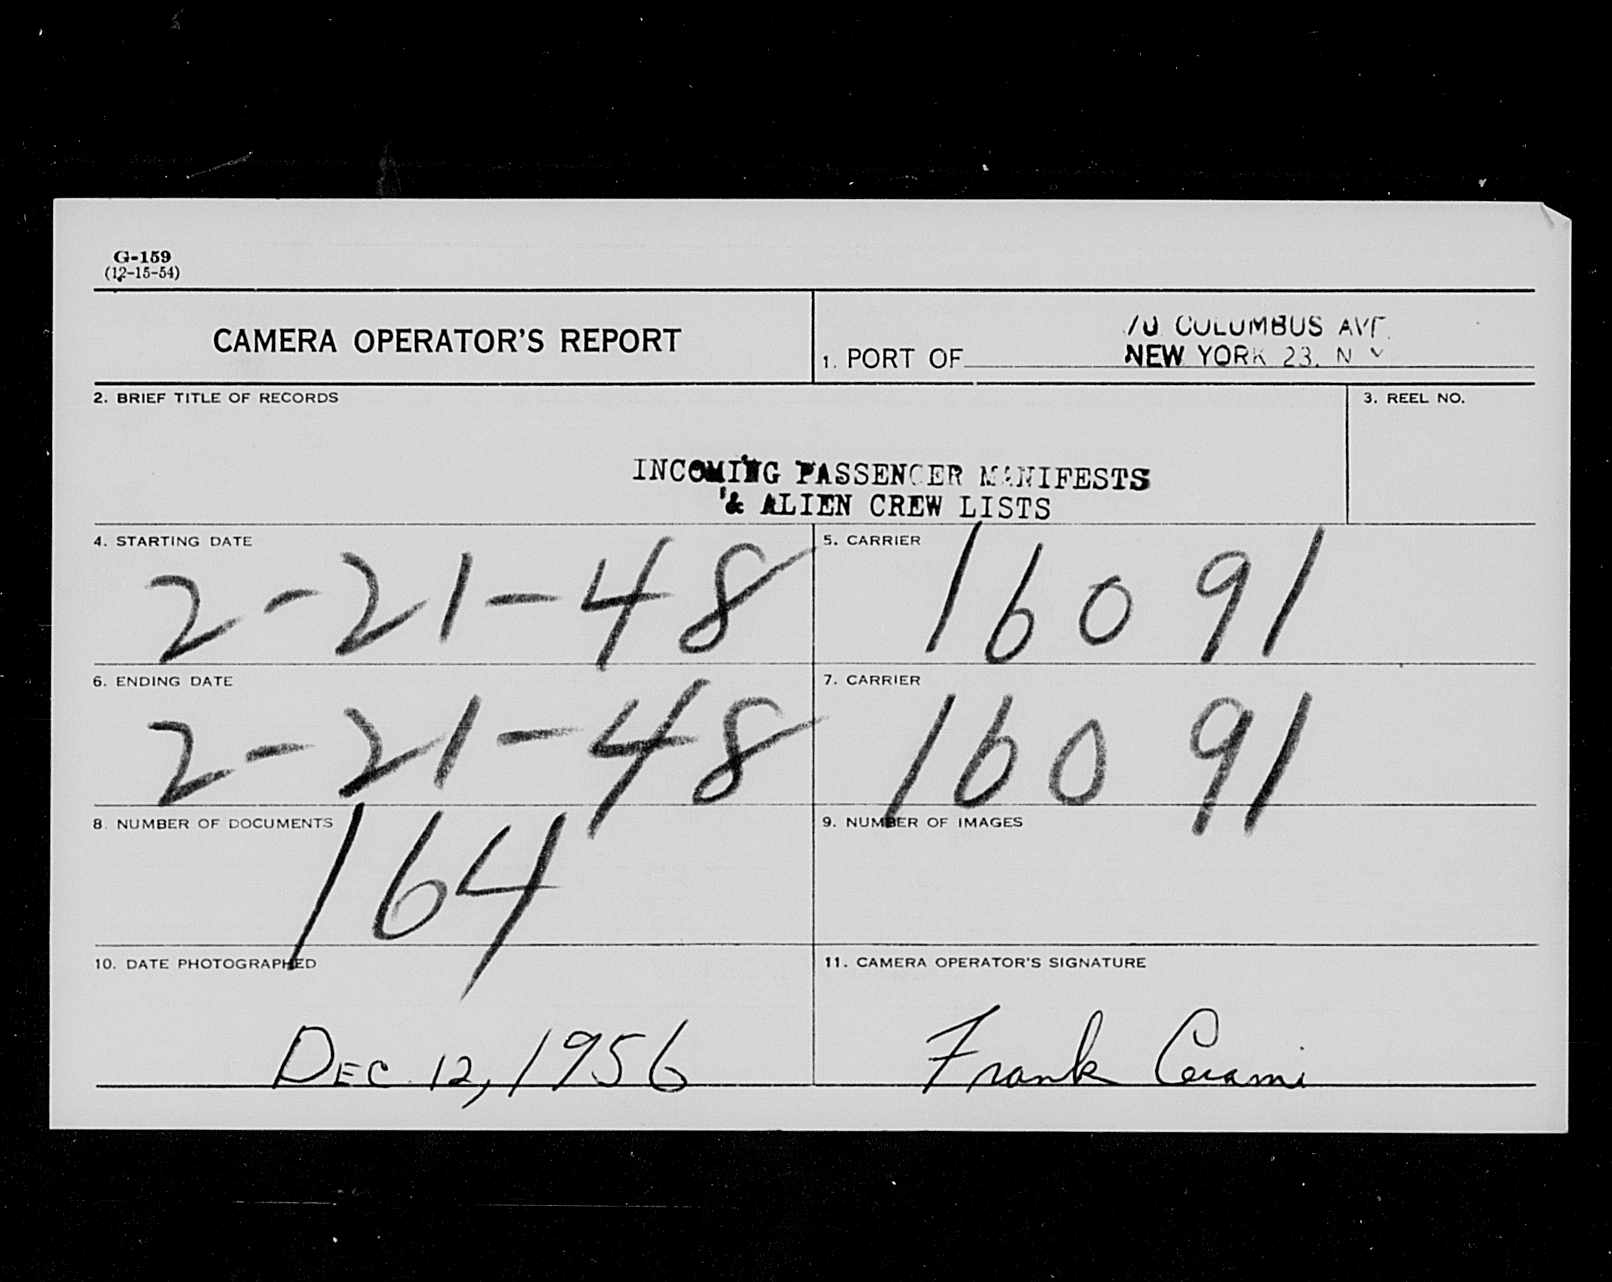 G-159
(12-15-54)
CAMERA OPERATOR'S REPORT
70 COLUMBUS AVE.
1. PORT OF NEW YORK 23, N Y
2. BRIEF TITLE OF RECORDS
3. REEL NO.
INCOMING PASSENGER MANIFESTS
& ALIEN CREW LISTS
4. STARTING DATE
2-21-48
5. CARRIER
16091
6. ENDING DATE
2-21-48
7. CARRIER
16091
8. NUMBER OF DOCUMENTS
164
9. NUMBER OF IMAGES
10. DATE PHOTOGRAPHED
DEC. 12, 1956
11. CAMERA OPERATOR'S SIGNATURE
Frank Cerami